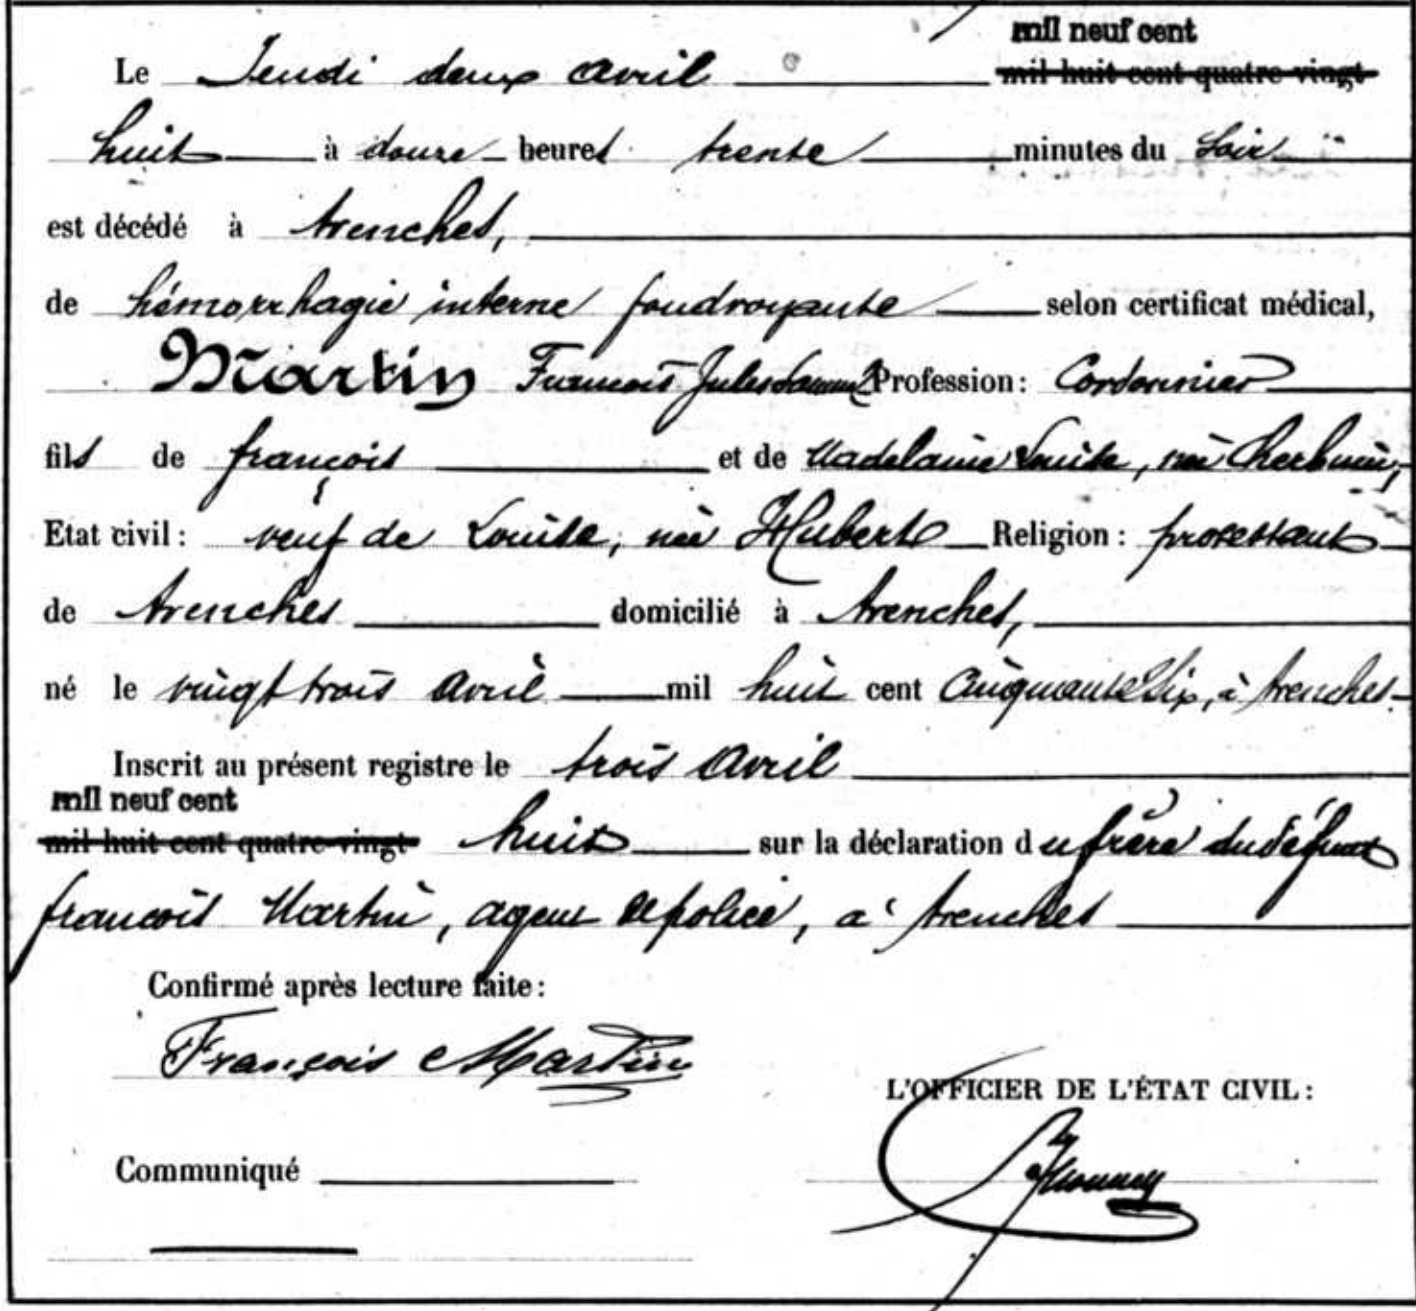 mil neuf cent
Le Jeudi deux avril mil huit cent quatre-vingt
huit à douze heures trente minutes du soir
est décédé à Avenches,
de hémorrhagie interne foudroyante selon certificat médical,
Martin François Jules Profession: Cordonnier
fils de françois et de Madelaine Louise, née
Etat civil: veuf de Louise, née Hubert Religion: protestant
de Avenches domicilié à Avenches,
né le vingt trois Avril mil huit cent Cinquante Six, à Avenches.
Inscrit au présent registre le trois Avril
mil neuf cent
mil huit cent quatre-vingt huit sur la déclaration du frère du défunt
françois Martin, agent de police, à Avenches
Confirmé après lecture faite:
François Martin
L'OFFICIER DE L'ÉTAT CIVIL:
Communiqué